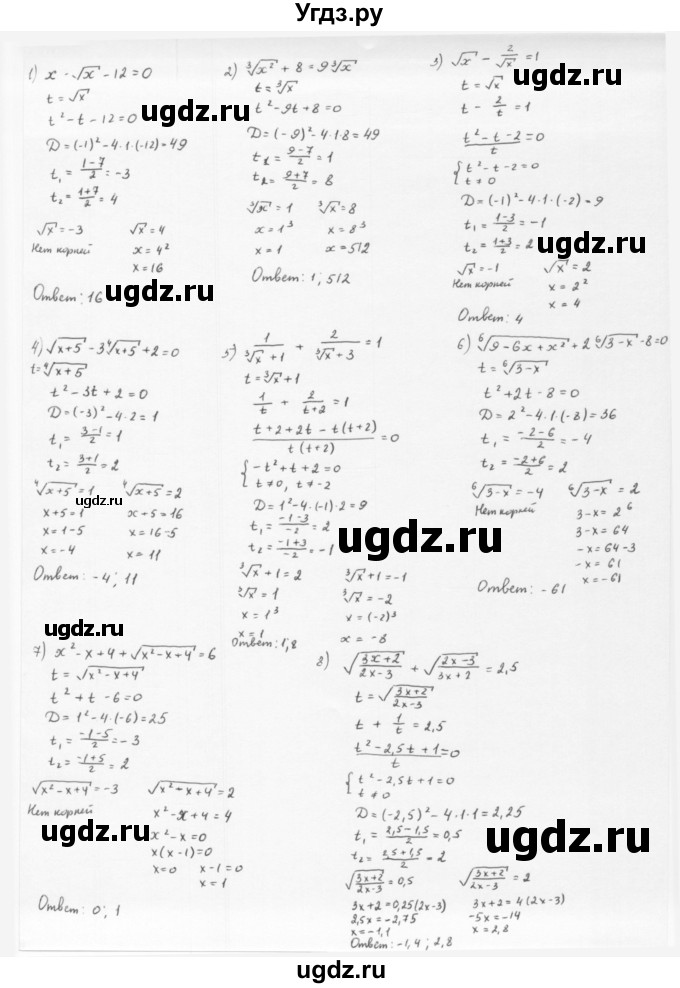 Угдз.ру
1) x - √x - 12 = 0
t = √x
t² - t - 12 = 0
D = (-1)² - 4·1·(-12) = 49
t₁ = (1-7)/2 = -3
t₂ = (1+7)/2 = 4
√x = -3    √x = 4
Нет корней    x = 4²
x = 16
Ответ: 16
2) ³√x² + 8 = 9 ³√x
t = ³√x
t² - 9t + 8 = 0
D = (-9)² - 4·1·8 = 49
t₁ = (9-7)/2 = 1
t₂ = (9+7)/2 = 8
³√x = 1    ³√x = 8
x = 1³    x = 8³
x = 1    x = 512
Ответ: 1; 512
3) √x - 2/√x = 1
t = √x
t - 2/t = 1
(t² - t - 2)/t = 0
{ t² - t - 2 = 0
t ≠ 0
D = (-1)² - 4·1·(-2) = 9
t₁ = (1-3)/2 = -1
t₂ = (1+3)/2 = 2
√x = -1    √x = 2
Нет корней    x = 2²
x = 4
Ответ: 4
4) √x+5 - 3 ⁴√x+5 + 2 = 0
t = ⁴√x+5
t² - 3t + 2 = 0
D = (-3)² - 4·2 = 1
t₁ = (3-1)/2 = 1
t₂ = (3+1)/2 = 2
⁴√x+5 = 1    ⁴√x+5 = 2
x+5 = 1    x+5 = 16
x = 1-5    x = 16-5
x = -4    x = 11
Ответ: -4; 11
5) 1/(³√x + 1) + 2/(³√x + 3) = 1
t = ³√x + 1
1/t + 2/(t+2) = 1
(t + 2 + 2t - t(t+2))/(t(t+2)) = 0
{ -t² + t + 2 = 0
t ≠ 0, t ≠ -2
D = 1² - 4·(-1)·2 = 9
t₁ = (-1-3)/-2 = 2
t₂ = (-1+3)/-2 = -1
³√x + 1 = 2    ³√x + 1 = -1
³√x = 1    ³√x = -2
x = 1³    x = (-2)³
x = 1    x = -8
Ответ: 1,8
6) ⁶√9-6x+x² + 2 ⁶√3-x - 8 = 0
t = ⁶√3-x
t² + 2t - 8 = 0
D = 2² - 4·1·(-8) = 36
t₁ = (-2-6)/2 = -4
t₂ = (-2+6)/2 = 2
⁶√3-x = -4    ⁶√3-x = 2
Нет корней    3-x = 2⁶
3-x = 64
-x = 64-3
-x = 61
x = -61
Ответ: -61
7) x² - x + 4 + √x²-x+4 = 6
t = √x²-x+4
t² + t - 6 = 0
D = 1² - 4·(-6) = 25
t₁ = (-1-5)/2 = -3
t₂ = (-1+5)/2 = 2
√x²-x+4 = -3    √x²+x+4 = 2
Нет корней    x² - x + 4 = 4
x² - x = 0
x(x-1) = 0
x = 0    x-1 = 0
x = 1
Ответ: 0; 1
8) √(3x+2)/(2x-3) + √(2x-3)/(3x+2) = 2,5
t = √(3x+2)/(2x-3)
t + 1/t = 2,5
(t² - 2,5t + 1)/t = 0
{ t² - 2,5t + 1 = 0
t ≠ 0
D = (-2,5)² - 4·1·1 = 2,25
t₁ = (2,5-1,5)/2 = 0,5
t₂ = (2,5+1,5)/2 = 2
√(3x+2)/(2x-3) = 0,5    √(3x+2)/(2x-3) = 2
3x+2 = 0,25(2x-3)    3x+2 = 4(2x-3)
2,5x = -2,75    -5x = -14
x = -1,1    x = 2,8
Ответ: -1,4; 2,8
ugdz.ru
ugdz.ru
ugdz.ru
ugdz.ru
ugdz.ru
ugdz.ru
ugdz.ru
ugdz.ru
ugdz.ru
ugdz.ru
ugdz.ru